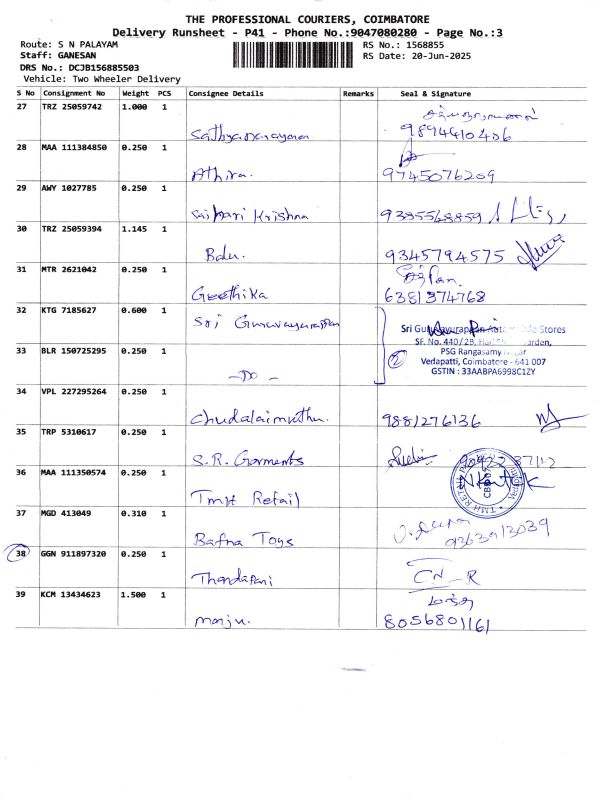 THE PROFESSIONAL COURIERS, COIMBATORE
Delivery Runsheet - P41 - Phone No.:9047080280 - Page No.:3
Route: S N PALAYAM
RS No.: 1568855
Staff: GANESAN
RS Date: 20-Jun-2025
DRS No.: DCJB156885503
Vehicle: Two Wheeler Delivery
S No Consignment No Weight PCS Consignee Details Remarks Seal & Signature
27 TRZ 25059742 1.000 1
Sathyanarayanan 9894410406
28 MAA 111384850 0.250 1
Athira. 9745076209
29 AWY 1027785 0.250 1
Saihari Krishna 9385568859
30 TRZ 25059394 1.145 1
Balu. 9345794575
31 MTR 2621042 0.250 1
Geethika 6381374768
32 KTG 7185627 0.600 1
Sri Guruvayurappan
Sri Guruvayurappan Automobile Stores
SF. No. 440/2B, Garden,
33 BLR 150725295 0.250 1
PSG Rangasamy Nagar
Vedapatti, Coimbatore - 641 007
GSTIN : 33AABPA6998C1ZY
2
-DO-
34 VPL 227295264 0.250 1
Chudalaimuthu. 9881276136
35 TRP 5310617 0.250 1
S.R. Garments
36 MAA 111350574 0.250 1
TMH Retail
37 MGD 413049 0.310 1
Bafna Toys 9363913039
38 GGN 911897320 0.250 1
Thandapani CN-R
39 KCM 13434623 1.500 1
manju. 8056801161